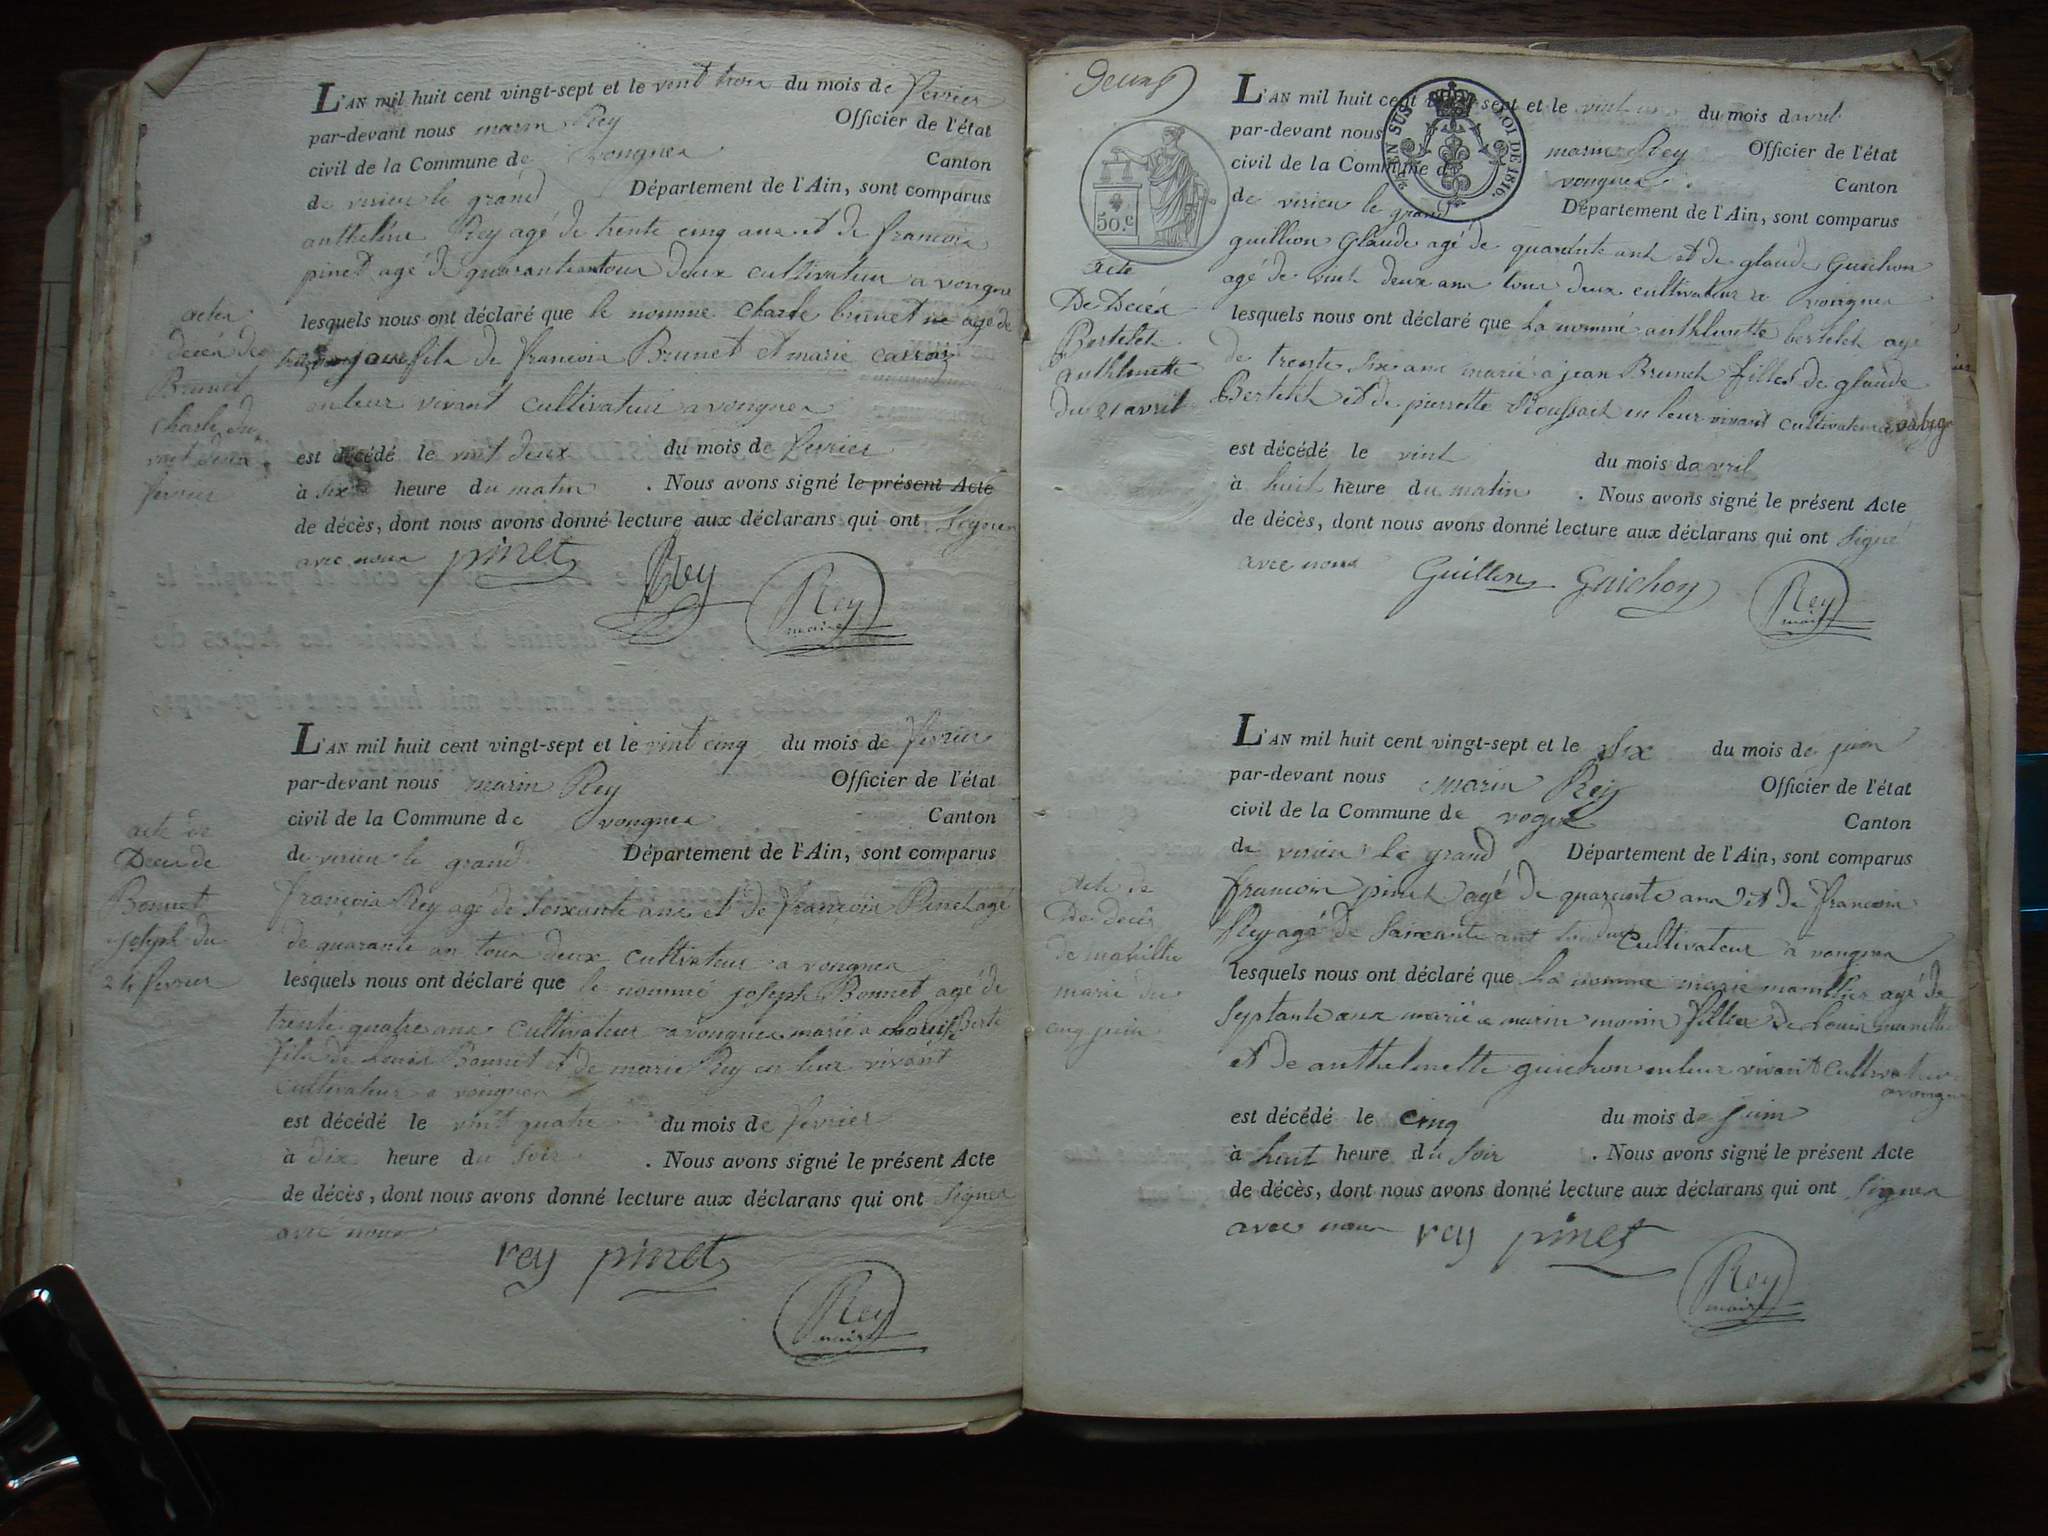 L'AN mil huit cent vingt-sept et le vent trois du mois de fevrier
par-devant nous marin Rey Officier de l'état
civil de la Commune de vongnes Canton
de virieu le grand Département de l'Ain, sont comparus
anthelme Rey agé de trente cinq ans et de francois
pinet agé de quarante tous deux cultivateur a vongne
lesquels nous ont déclaré que le nomme charle brunet agé de
jour fils de francois Brunet et marie
en leur vivant cultivateur a vongnes
est décédé le vint deux du mois de fevrier
à six heure du matin . Nous avons signé le présent Acte
de décès, dont nous avons donné lecture aux déclarans qui ont signer
avec nous pinet Rey Rey
maire
actes
decés de
Brunet
charle du
vint deux
fevrier
L'AN mil huit cent vingt-sept et le vint cinq du mois de fevrier
par-devant nous marin Rey Officier de l'état
civil de la Commune de vongnes Canton
de virieu le grand Département de l'Ain, sont comparus
françois Rey age de soixante ans et de francois Pinet agé
de quarante an tous deux cultivateur a vongnes
lesquels nous ont déclaré que le nommé joseph Bonnet agé de
trente quatre ans cultivateur a vongnes marié a
fils de Louis Bonnet et de marie Rey en leur vivant
cultivateur a vongnes
est décédé le vint quatre du mois de fevrier
à dix heure du soir . Nous avons signé le présent Acte
de décès, dont nous avons donné lecture aux déclarans qui ont signer
avec nous
rey pinet
Rey
maire
acte de
Deces de
Bonnet
joseph du
24 fevrier
L'AN mil huit cent vingt-sept et le vint un du mois davril
par-devant nous marin Rey Officier de l'état
civil de la Commune de vongnes Canton
de virieu le grand Département de l'Ain, sont comparus
EN SUS LOI DE 1816.
50.c
guillion Glaude agé de quarante ant et de glaude Guichon
agé de vint deux ans tous deux cultivateur a vongnes
lesquels nous ont déclaré que la nommé anthlmette bertelet age
de trente six ans marié a jean Brunet filles de glaude
Bertelet et de pierrette Roussait en leur vivant cultivateur
est décédé le vint du mois davril
à huit heure du matin . Nous avons signé le présent Acte
de décès, dont nous avons donné lecture aux déclarans qui ont signé
avec nous Guillon Guichon Rey
maire
acte
De Decés
Bertelet
anthlmette
du 21 avril
L'AN mil huit cent vingt-sept et le six du mois de juin
par-devant nous marin Rey Officier de l'état
civil de la Commune de Canton
de virieu le grand Département de l'Ain, sont comparus
francois pinet agé de quarante ans et de francois
Rey agé de saixante ant cultivateur a vongnes
lesquels nous ont déclaré que la nomme marie agé de
septante ans marié a marin monin filles de Louis
et de anthelmette guichon en leur vivant cultivateur
a vongne
est décédé le cinq du mois de juin
à huit heure du soir . Nous avons signé le présent Acte
de décès, dont nous avons donné lecture aux déclarans qui ont signer
avec nous rey pinet
Rey
maire
Acte de
De decès
marie du
cinq juin